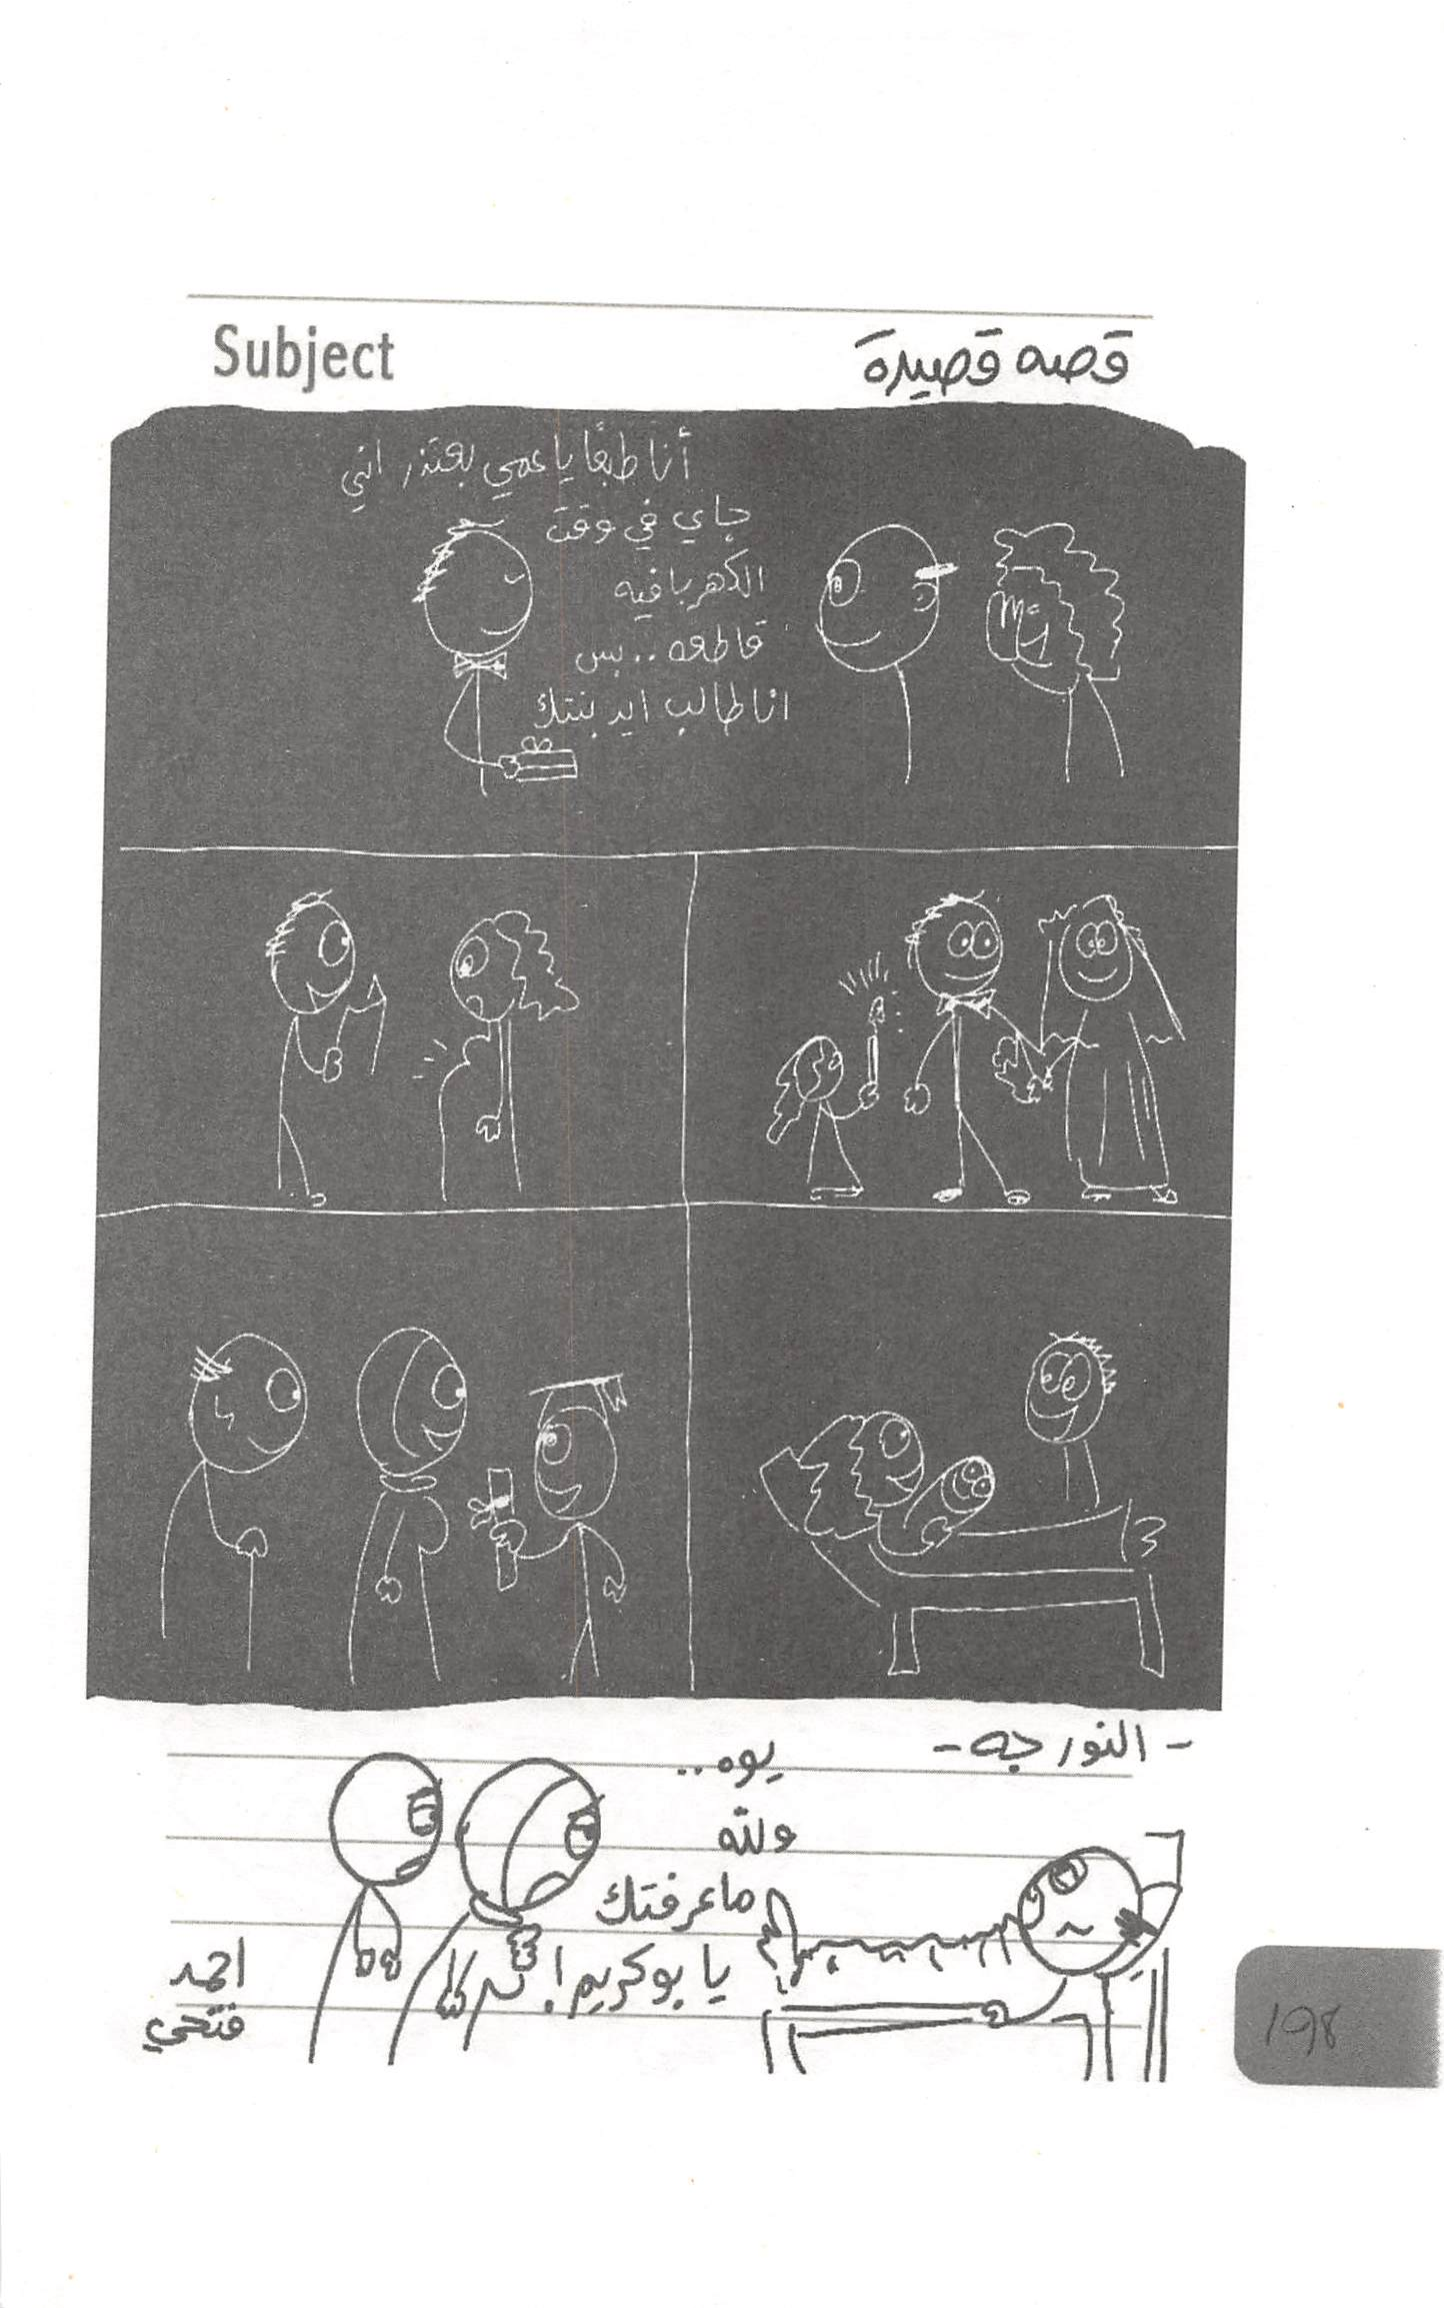 Subject
قصه قصيرة
أنا طبعًا يا عمي بعتذر اني
جاي في وقت
الكهربا فيه
قاطعه .. بس
انا طالب ايد بنتك
- النور جه -
يوه ..
ولله
ما عرفتك
يا بو كريم !
احمد
فتحي
١٩٨